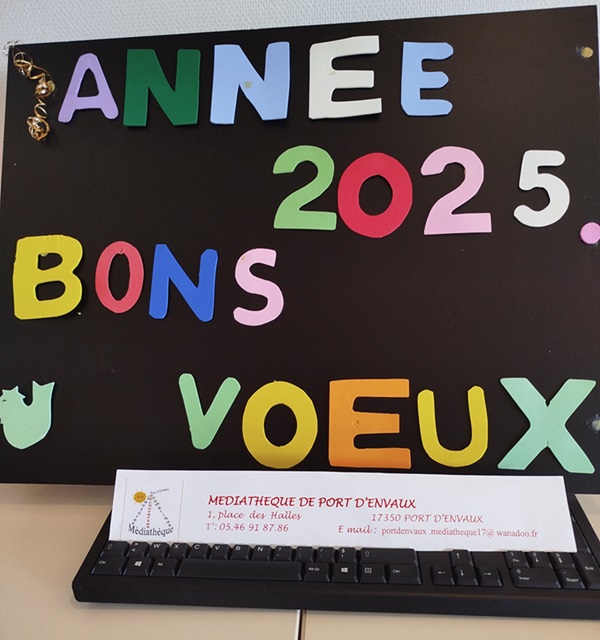 ANNEE
2025.
BONS
VOEUX
Médiathèque
MEDIATHEQUE DE PORT D'ENVAUX
1, place des Halles 17350 PORT D'ENVAUX
T': 05.46 91 87.86 E mail : portdenvaux .mediatheque17@ wanadoo.fr
W X C V B N
Ctrl Alt Alt Gr Ctrl Inser Suppr